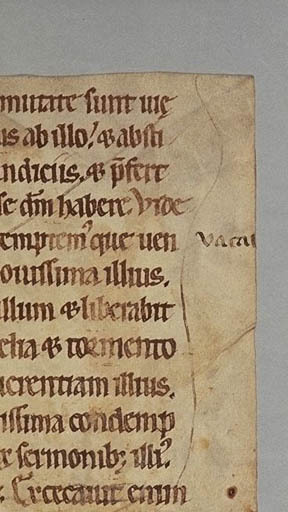 mutate sunt uie
us ab illo. & absti
ndicus. & p̄fert
se dm̄ habere. Vide
temptem⁹ que uen
ouissima illius.
illum & liberabit
elia & tormento
uerentiam illius.
issima contemp
sermonib; illi⁹.
Excecauit enim